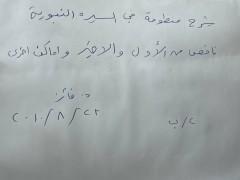 شرح منظومة في السيرة النبوية
ناقص من الأول والأخير وأماكن أخرى
د. فائز
٢٠١٠/٨/٢٢
ب/٢